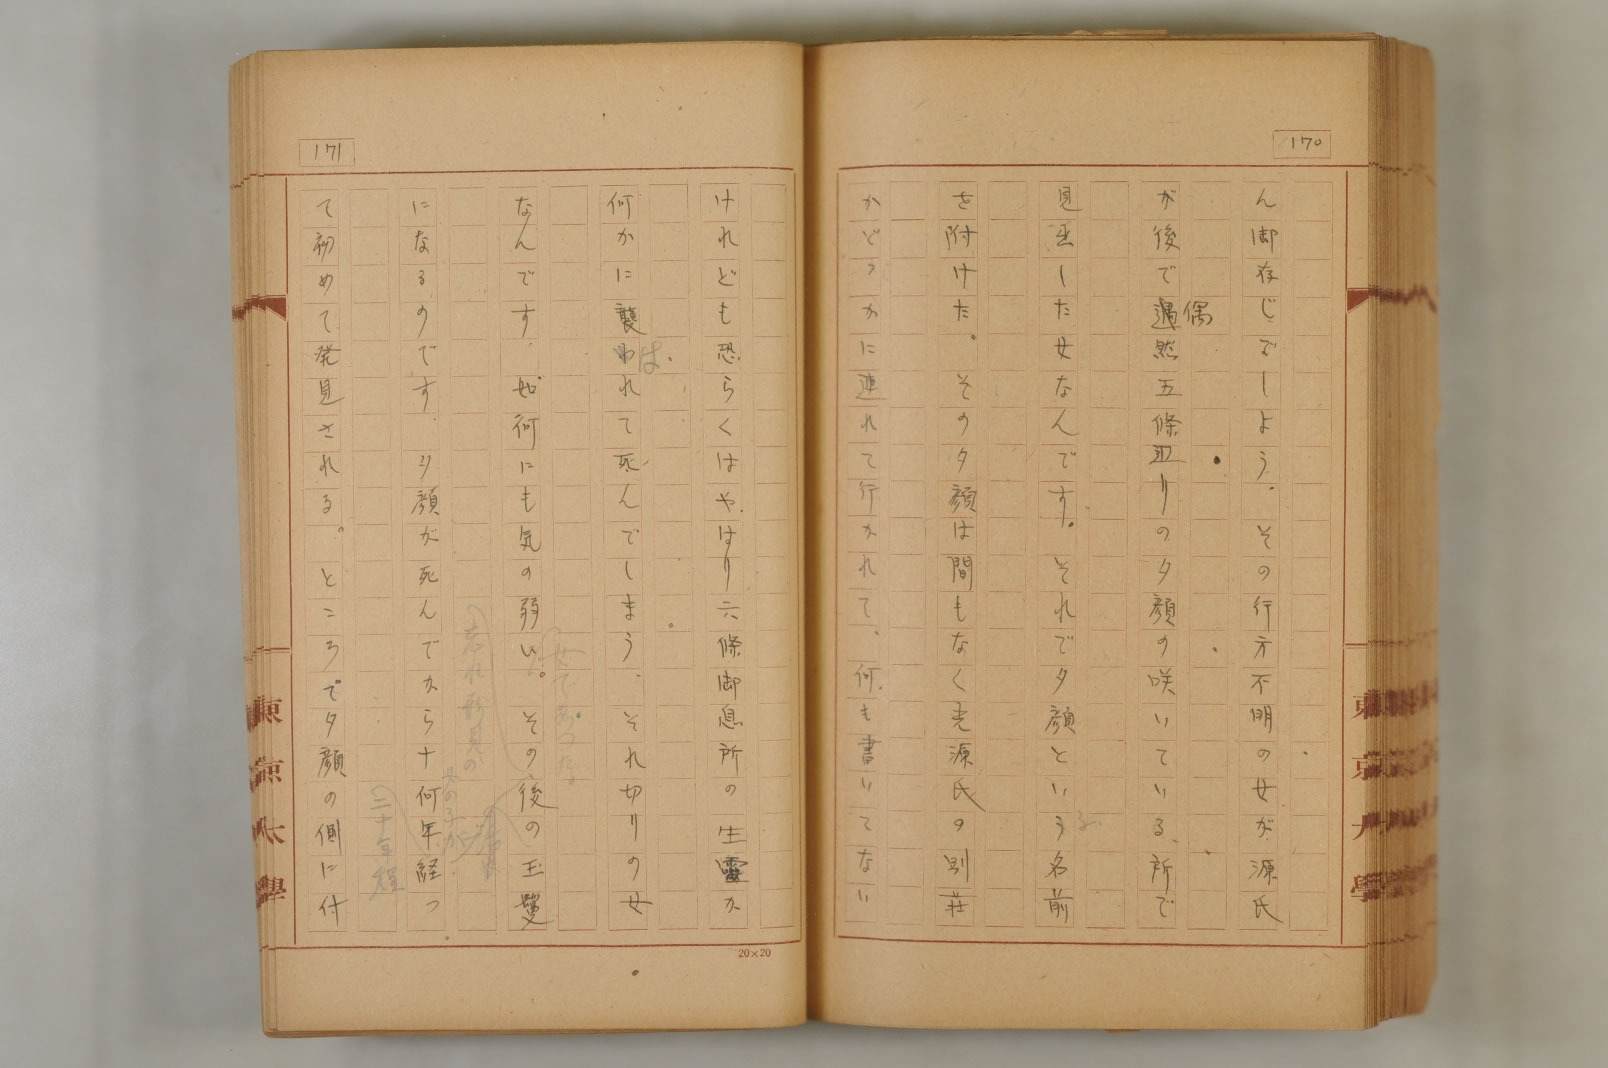 170
ん御存じでしよう。その行方不明の女が源氏
が後で遇然五條辺りの夕顔の咲いている、所で
偶
見出した女なんです。それで夕顔という名前
を附けた。その夕顔は間もなく光源氏の別荘
かどつかに連れて行かれて、何も書いてない
171
けれども恐らくはやはり六條御息所の生靈か
何かに襲われて死んでしまう、それ切りの女
は
なんです。如何にも気の弱い。その後の玉鬘
女であつた。
忘れ形見の
になるのです。夕顔が死んでから十何年経つ
女の子が
二十年程
て初めて発見される。ところで夕顔の側に付
20×20
東京大學
東京大學